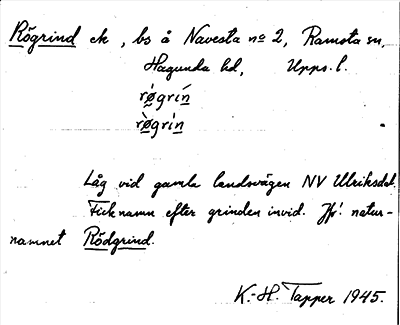 Rögrind ek , bs å Navesta nº 2, Ramsta sn,
Hagunda hd, Upps. l.
rǿgrín
rø̀grìn
Låg vid gamla landsvägen NV Ulriksdal.
Fick namn efter grinden invid. Jfr! natur-
namnet Rödgrind.
K.-H. Tapper 1945.